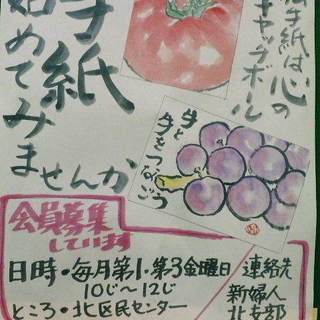 手紙は心の
キャッチボール
手紙
始めてみ
ませんか
手と
手をつなごう
会員募集
しています
日時・毎月第1・第3金曜日
10じ〜12じ
ところ・北区民センター
連絡先
新婦人
北支部